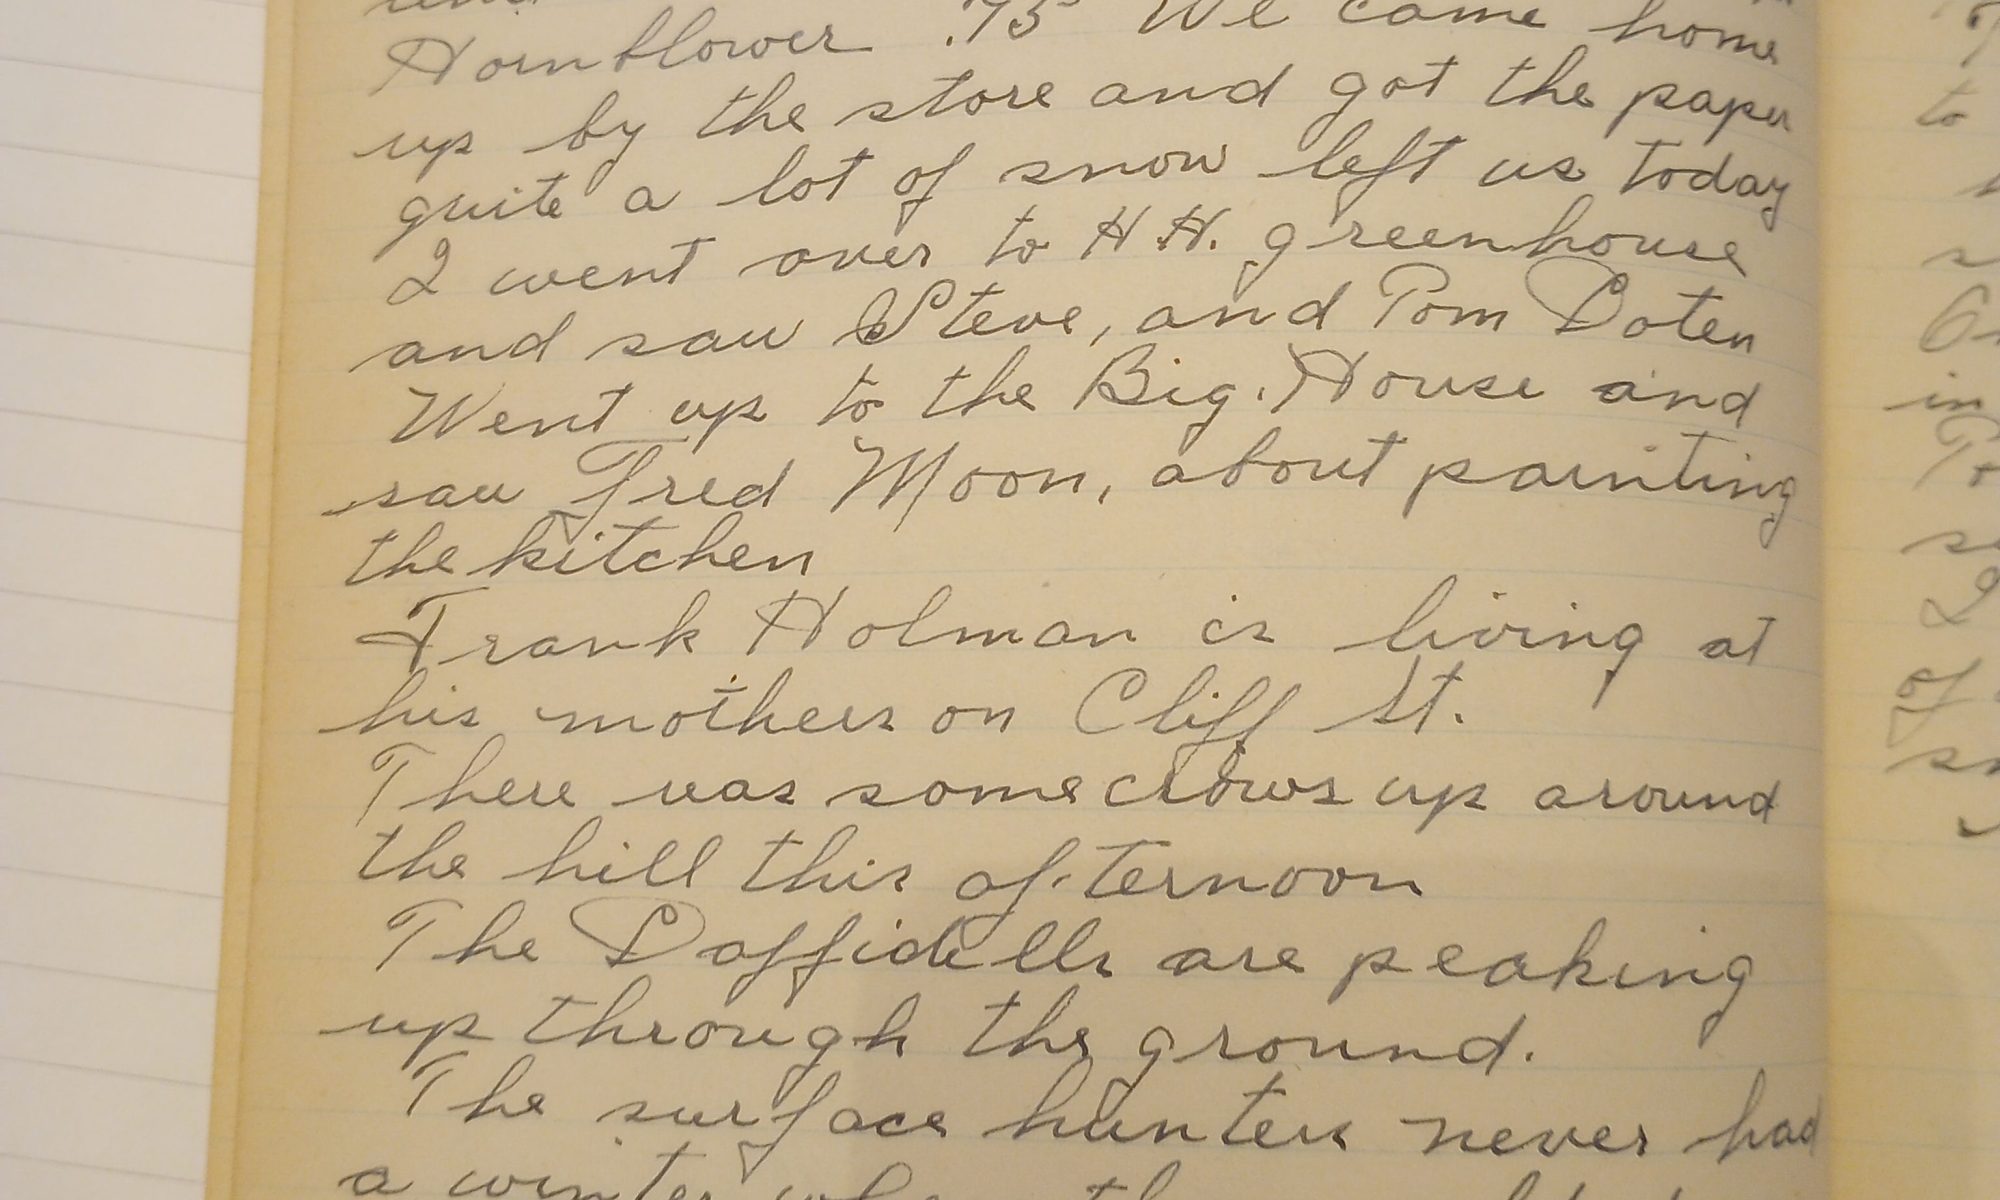 Hornblower .75 We came home
up by the store and got the paper
quite a lot of snow left us today
I went over to H H. greenhouse
and saw Steve, and Tom Doten
Went up to the Big. House and
saw Fred Moon, about painting
the kitchen
Frank Holman is living at
his mothers on Cliff St.
There was some crows up around
the hill this afternoon
The Daffidells are peaking
up through the ground.
The surface hunters never had
a winter
to
in
of